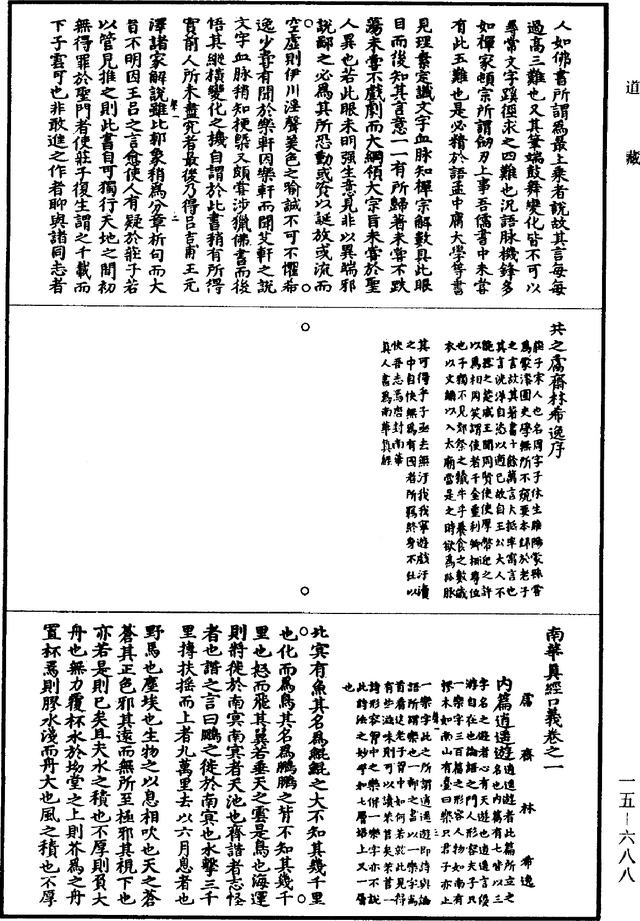 道藏
人如佛書所謂為最上乘者說故其言每每
過高三難也又其筆端鼓舞變化皆不可以
尋常文字蹊徑求之四難也況語脉機鋒多
如禪家頓宗所謂劒刃上事吾儒書中未嘗
有此五難也是必精於語孟中庸大學等書
見理素定識文字血脉知禪宗解數具此眼
目而後知其言意一一有所歸著未嘗不跌
蕩未嘗不戲劇而大綱領大宗旨未嘗於聖
人異也若此眼未明強生意見非以異端邪
說鄙之必為其所恐動或資以誕放或流而
空虛則伊川淫聲美色之喻誠不可不懼希
逸少嘗有聞於樂軒因樂軒而聞艾軒之說
文字血脉稍知梗槩又頗嘗涉獵佛書而後
悟其縱橫變化之機自謂於此書稍有所得
實前人所未盡究者最後乃得呂吉甫王元
澤諸家解說雖比郭象稍為分章析句而大
旨不明因王呂之言愈使人有疑於莊子若
以管見推之則此書自可獨行天地之間初
無得罪於聖門者使莊子復生謂之千載而
下子雲可也非敢進之作者聊與諸同志者
共之鬳齋林希逸序
莊子宋人也名周字子休生睢陽蒙縣嘗
為蒙漆園吏學無所不窺要本歸於老子
之言故其著書十餘萬言大抵率寓言也
其言洸洋自恣以適已故自王公大人不
能器之楚威王聞周賢使使厚幣迎之許
以為相周笑謂使者千金重利卿相尊位
也子獨不見郊祭之犧牛乎養食之數歲
衣以文繡以入太廟當是之時欲為孤豚
其可得乎子亟去無汙我我寧遊戲汙瀆
之中自快無為有國者所羈終身不仕以
快吾志焉唐封南華
真人書為南華真經
南華真經口義卷之一
鬳齋林希逸
內篇逍遙遊
逍遙遊者此篇所立之
名也內篇有七皆以三
字名之遊者心有天遊也逍遙言優
游自在也論語之門人形容夫子只
一樂字三百篇之形容人物如南有
樛木如南山有臺曰樂只君子亦止
一樂字此之所謂逍遙遊即詩與論
語所謂樂也一部之書以一樂字為
首看這老子胸中如何若就此見得
有些滋味則可以讀芣苢矣芣苢一
詩形容胸中之樂併一樂字亦不說
此詩法之妙譬如七層塔上又一層
也
北冥有魚其名為鯤鯤之大不知其幾千里
也化而為鳥其名為鵬鵬之背不知其幾千
里也怒而飛其翼若垂天之雲是鳥也海運
則將徙於南冥南冥者天池也齊諧者志怪
者也諧之言曰鵬之徙於南冥也水擊三千
里摶扶搖而上者九萬里去以六月息者也
野馬也塵埃也生物之以息相吹也天之蒼
蒼其正色邪其遠而無所至極邪其視下也
亦若是則已矣且夫水之積也不厚則負大
舟也無力覆杯水於坳堂之上則芥為之舟
置杯焉則膠水淺而舟大也風之積也不厚
一五－六八八